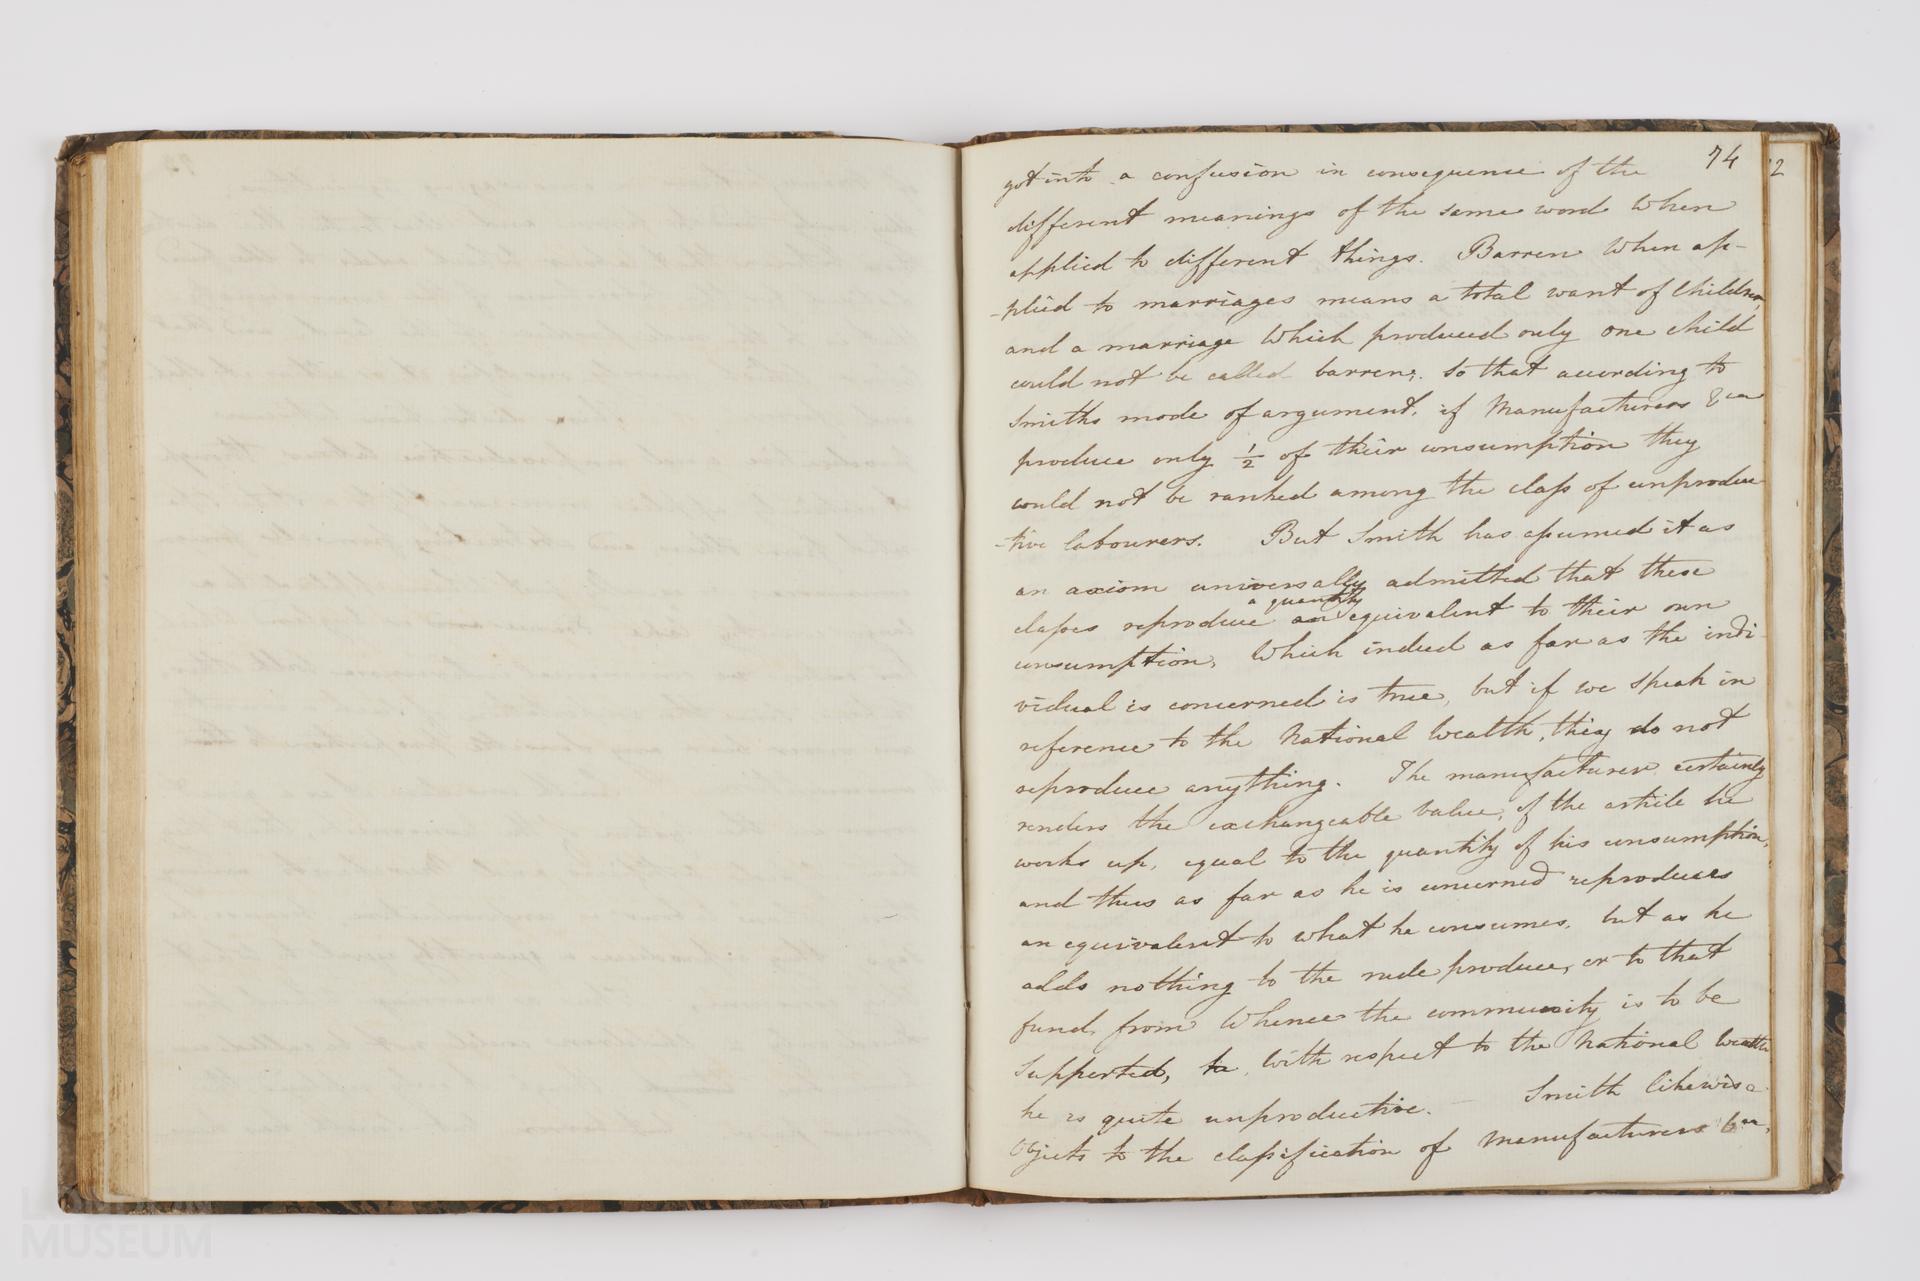 74
12
got into a confusion in consequence of the
different meanings of the same word when
applied to different things. Barren when ap-
-plied to marriages means a total want of children,
and a marriage which produced only one child
could not be called barren; so that according to
Smiths mode of argument, if Manufacturers &ca
produce only ½ of their consumption they
could not be ranked among the class of unproduc
-tive labourers. But Smith has assumed it as
an axiom universally admitted that these
a quantity
classes reproduce an equivalent to their own
consumption, Which indeed as far as the indi-
vidual is concerned is true, but if we speak in
reference to the National Wealth, they do not
reproduce anything. The manufacturer certainly
renders the exchangeable value, of the article he
works up, equal to the quantity of his consumption,
and thus as far as he is concerned reproduces
an equivalent to what he consumes, but as he
adds nothing to the rude produce, or to that
fund from Whence the community is to be
Supported, he, With respect to the National Wealth
he is quite unproductive. — Smith likewise
Objects to the classification of Manufacturers &ca,
LONDON
MUSEUM